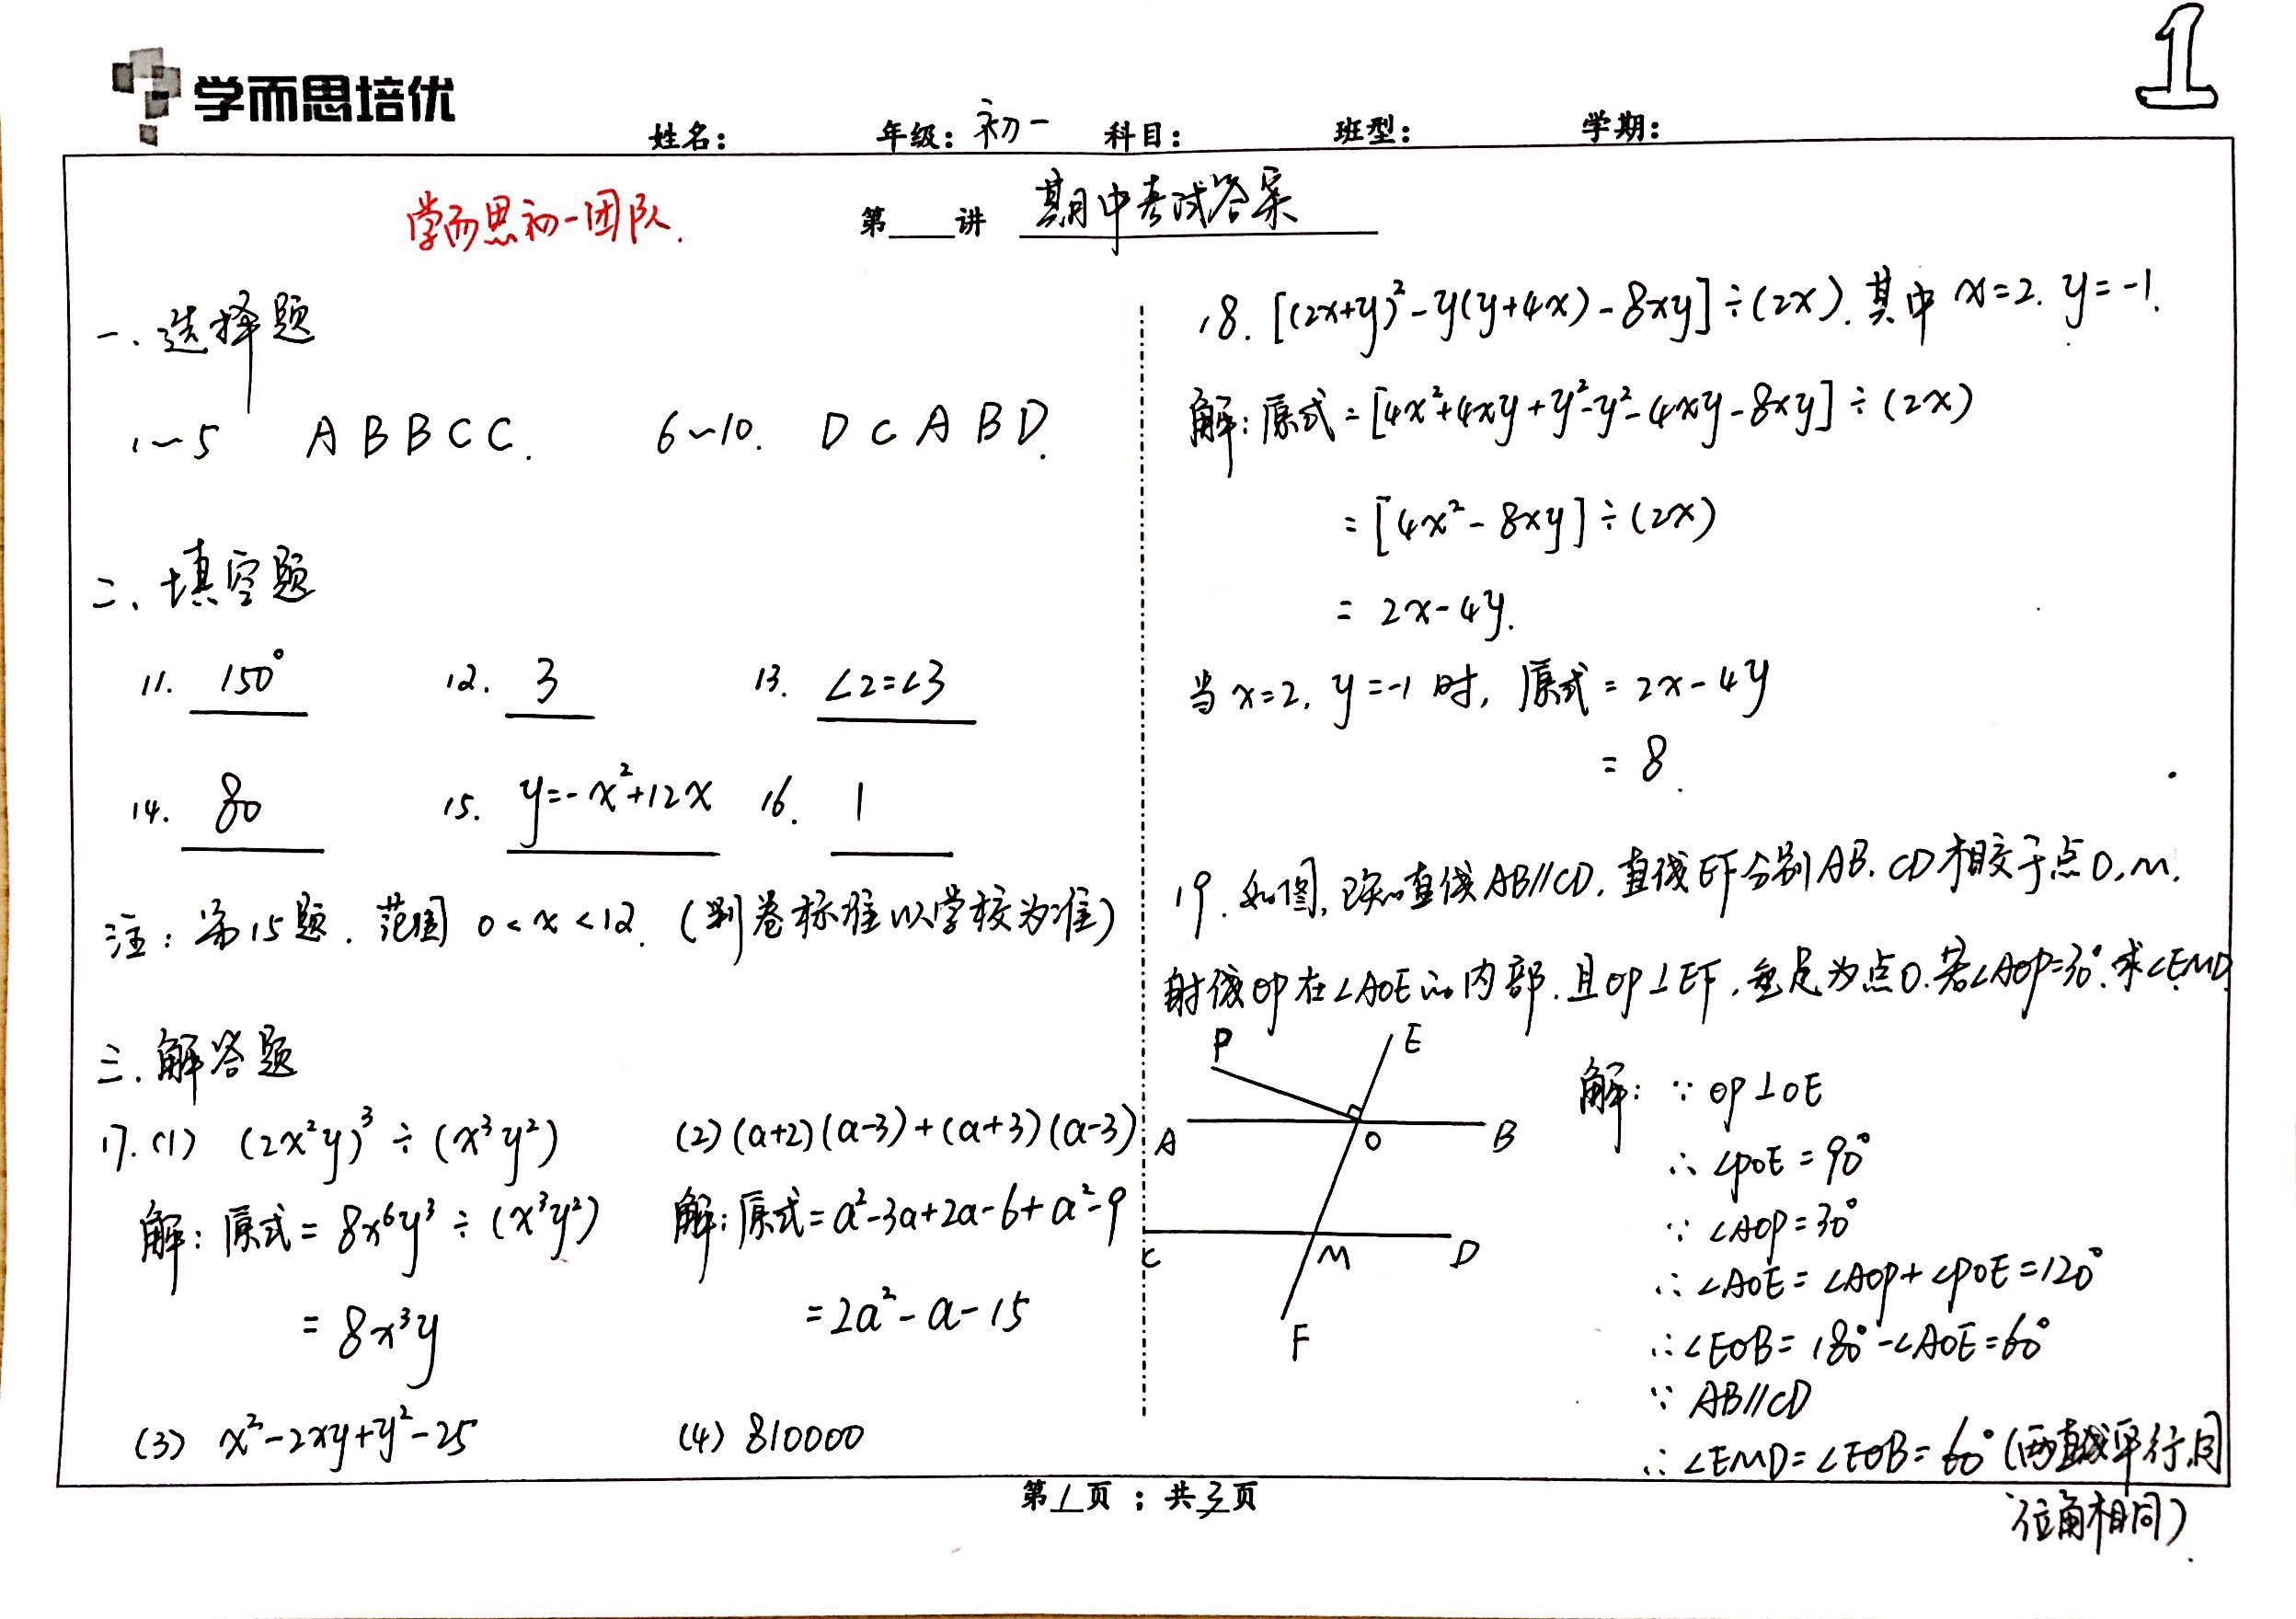 学而思培优
1
姓名: 年级: 初一 科目: 班型: 学期:
学而思初一团队.
第 讲 期中考试答案
一、选择题
1~5 A B B C C. 6~10. D C A B D.
二、填空题
11. 150° 12. 3 13. ∠2=∠3
14. 80 15. y=-x²+12x 16. 1
注: 第15题. 范围 0<x<12. (判卷标准以学校为准)
三. 解答题
17. (1) (2x²y)³÷(x³y²) (2) (a+2)(a-3)+(a+3)(a-3)
解: 原式= 8x⁶y³÷(x³y²) 解: 原式=a²-3a+2a-6+a²-9
= 8x³y =2a²-a-15
(3) x²-2xy+y²-25 (4) 810000
18. [(2x+y)²-y(y+4x)-8xy]÷(2x). 其中 x=2. y=-1.
解: 原式=[4x²+4xy+y²-y²-4xy-8xy]÷(2x)
=[4x²-8xy]÷(2x)
= 2x-4y.
当x=2. y=-1 时, 原式= 2x-4y
= 8.
19. 如图, 已知直线AB//CD. 直线EF分别AB. CD相交于点O, M.
射线OP在∠AOE的内部. 且OP⊥EF, 垂足为点O. 若∠AOP=30°. 求∠EMD.
P E
A O B
C M D
F
解: ∵ OP⊥OE
∴ ∠POE=90°
∵ ∠AOP=30°
∴ ∠AOE=∠AOP+∠POE=120°
∴ ∠EOB= 180°-∠AOE=60°
∵ AB//CD
∴ ∠EMD=∠EOB=60° (两直线平行,同
位角相同).
第1页 ; 共3页